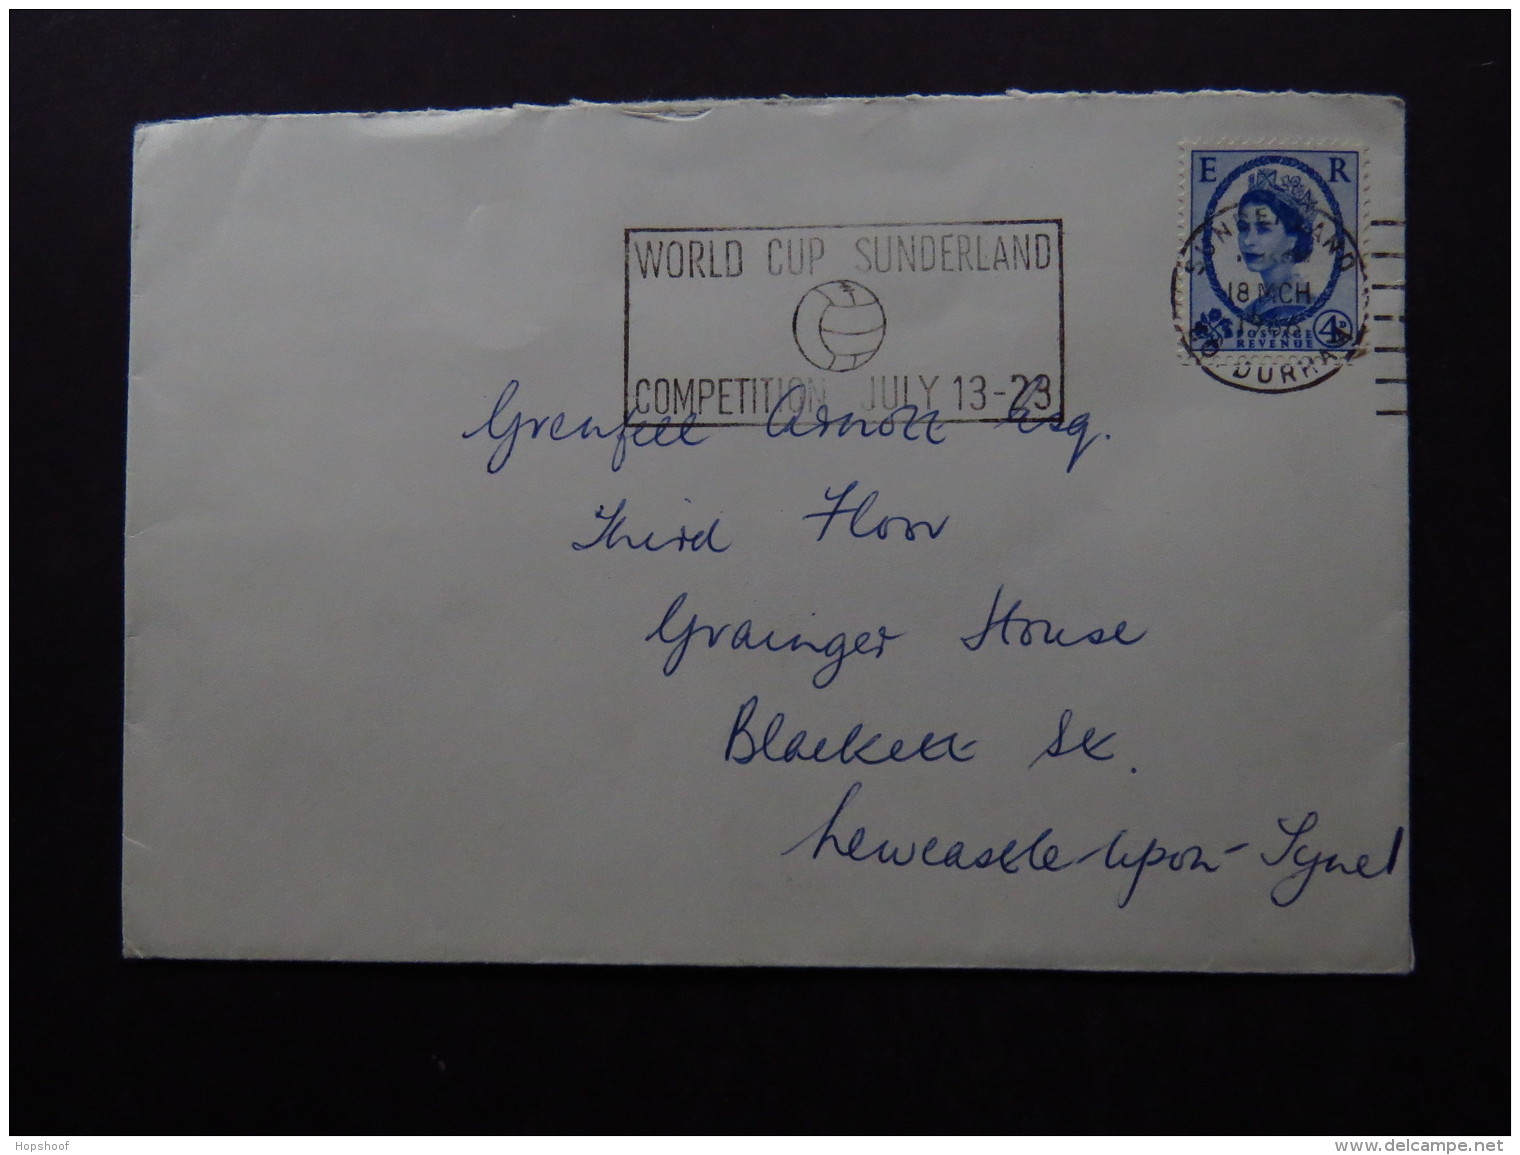 WORLD CUP SUNDERLAND
COMPETITION JULY 13-23
E R
SUNDERLAND
18 MCH
1966
CO. DURHAM
POSTAGE
REVENUE
4D
Grenfell Arnott Esq.
Third Floor
Grainger House
Blackett St.
Newcastle-upon-Tyne 1
Hopshoof
delcampe.net